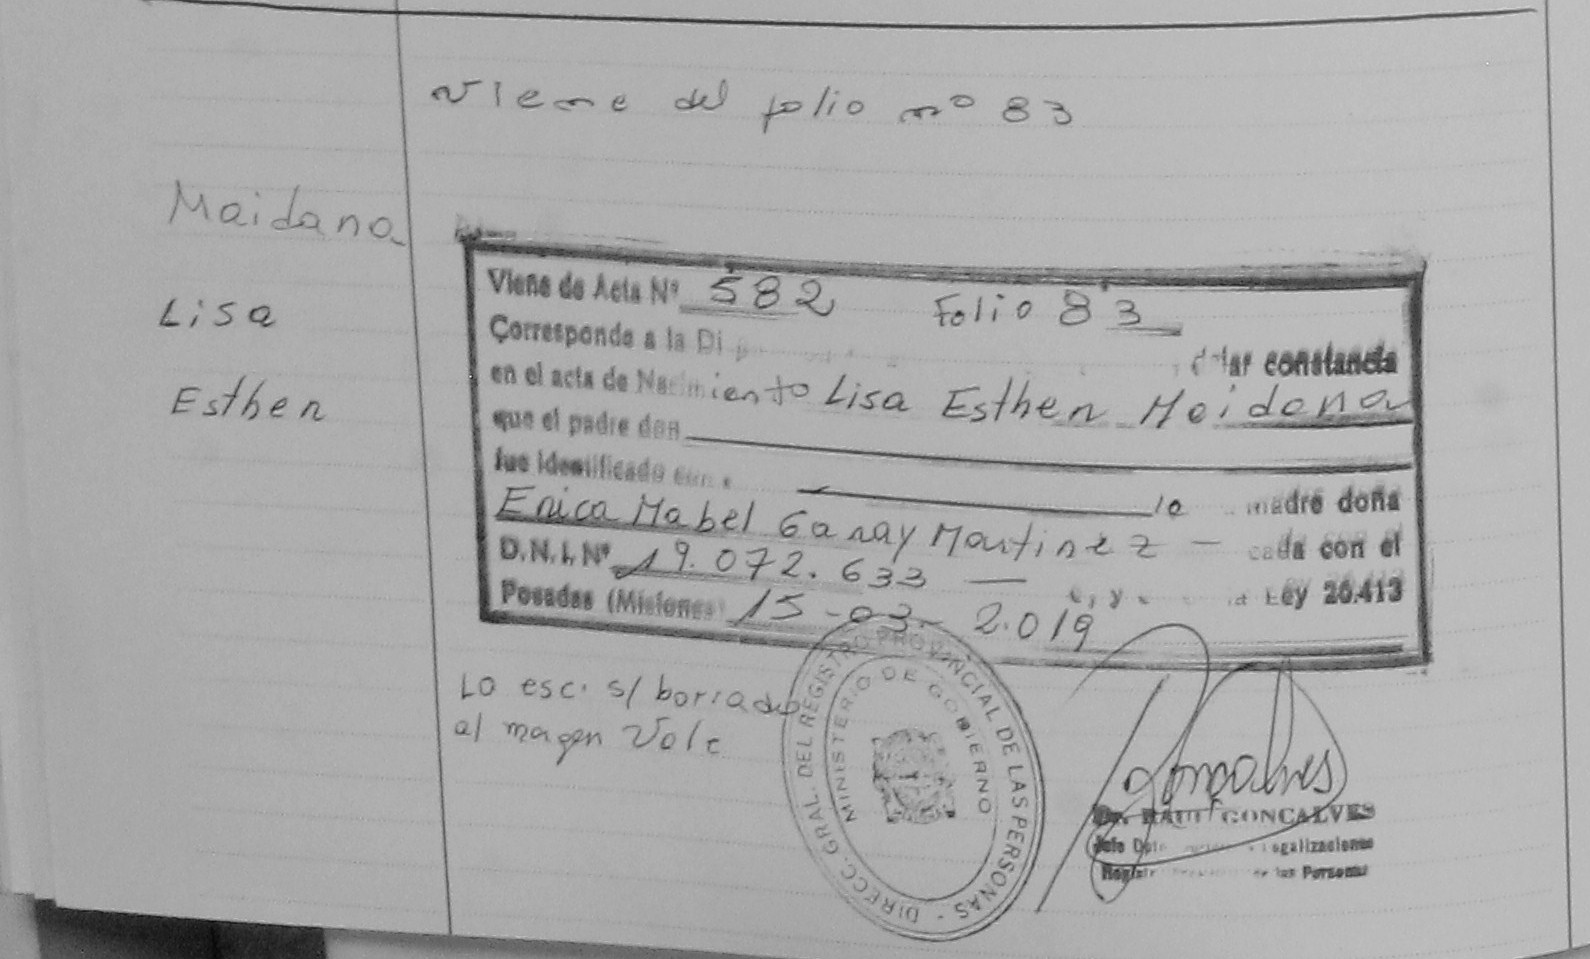 Viene del folio nº 83
Maidana
Lisa
Esther
Viene de Acta Nº 582 Folio 83
Corresponde a la Di
dejar constancia
en el acta de Nacimiento Lisa Esther Maidana
que el padre don
fue identificado con
la madre doña
Erica Mabel Garay Martinez -
cada con el
D.N.I. Nº 19.072.633 —
Ley 26.413
Posadas (Misiones) 15-03-2.019
Lo esc. s/ borrado
al margen Vale
DIRECC. GRAL. DEL REGISTRO PROVINCIAL DE LAS PERSONAS -
MINISTERIO DE GOBIERNO
Goncalves
Dr. RAUL GONCALVES
Jefe Legalizaciones
de las Personas